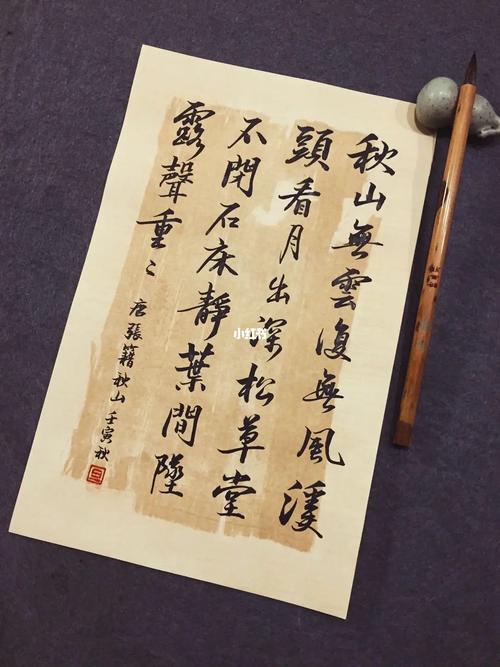 秋山無雲復無風溪
頭看月出深松草堂
不閉石床靜葉間墜
露聲重〻
唐張籍秋山壬寅秋
小红书